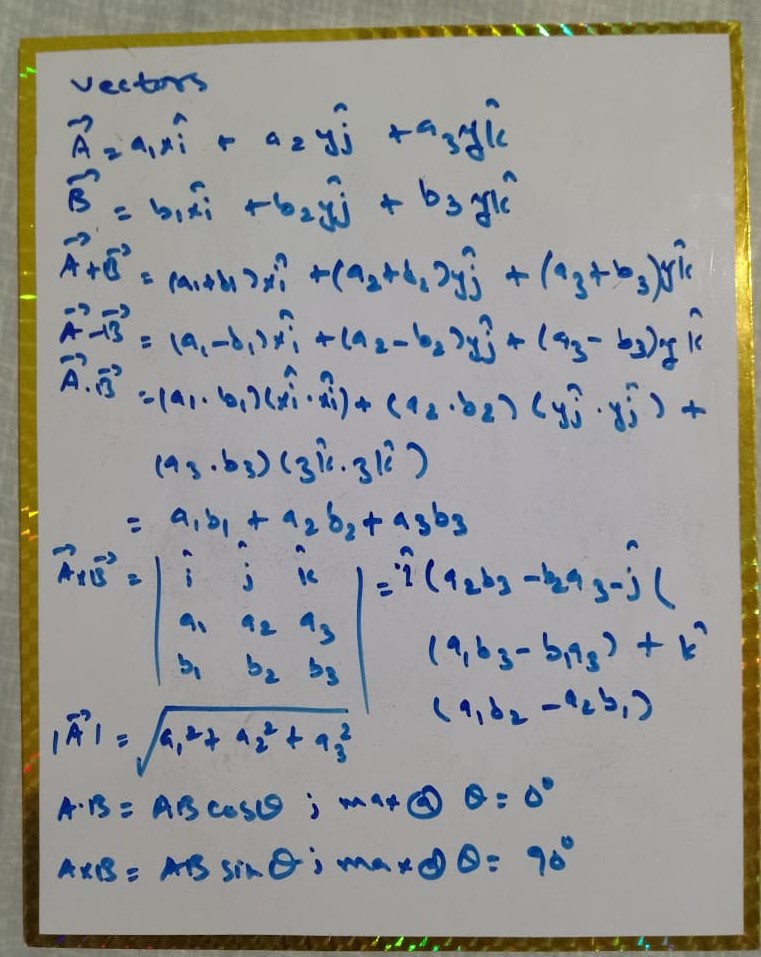 vectors
A⃗ = a₁xî + a₂yĵ + a₃yk̂
B⃗ = b₁xî + b₂yĵ + b₃yk̂
A⃗+B⃗ = (a₁+b₁)xî + (a₂+b₂)yĵ + (a₃+b₃)yk̂
A⃗-B⃗ = (a₁-b₁)xî + (a₂-b₂)yĵ + (a₃-b₃)yk̂
A⃗.B⃗ = (a₁.b₁)(xî.xî) + (a₂.b₂)(yĵ.yĵ) +
(a₃.b₃)(3k̂.3k̂)
= a₁b₁ + a₂b₂ + a₃b₃
A⃗xB⃗ = | î ĵ k̂ | = î (a₂b₃ - b₂a₃ - ĵ (
a₁ a₂ a₃ (a₁b₃ - b₁a₃) + k̂
b₁ b₂ b₃ (a₁b₂ - a₂b₁)
|A⃗| = √a₁² + a₂² + a₃²
A.B = AB cosθ ; max @ θ = 0°
AxB = AB sinθ ; max @ θ = 90°